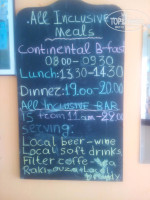 All Inclusive
Meals
Continental B-fast
08:00-09:30
Lunch: 13:30-14:30
Dinner: 19:00-20:00
All Inclusive BAR
IS from 11am-22:00
serving:
Local beer-wine
Local soft drinks
Filter coffe-tea
Raki-ouzo-local